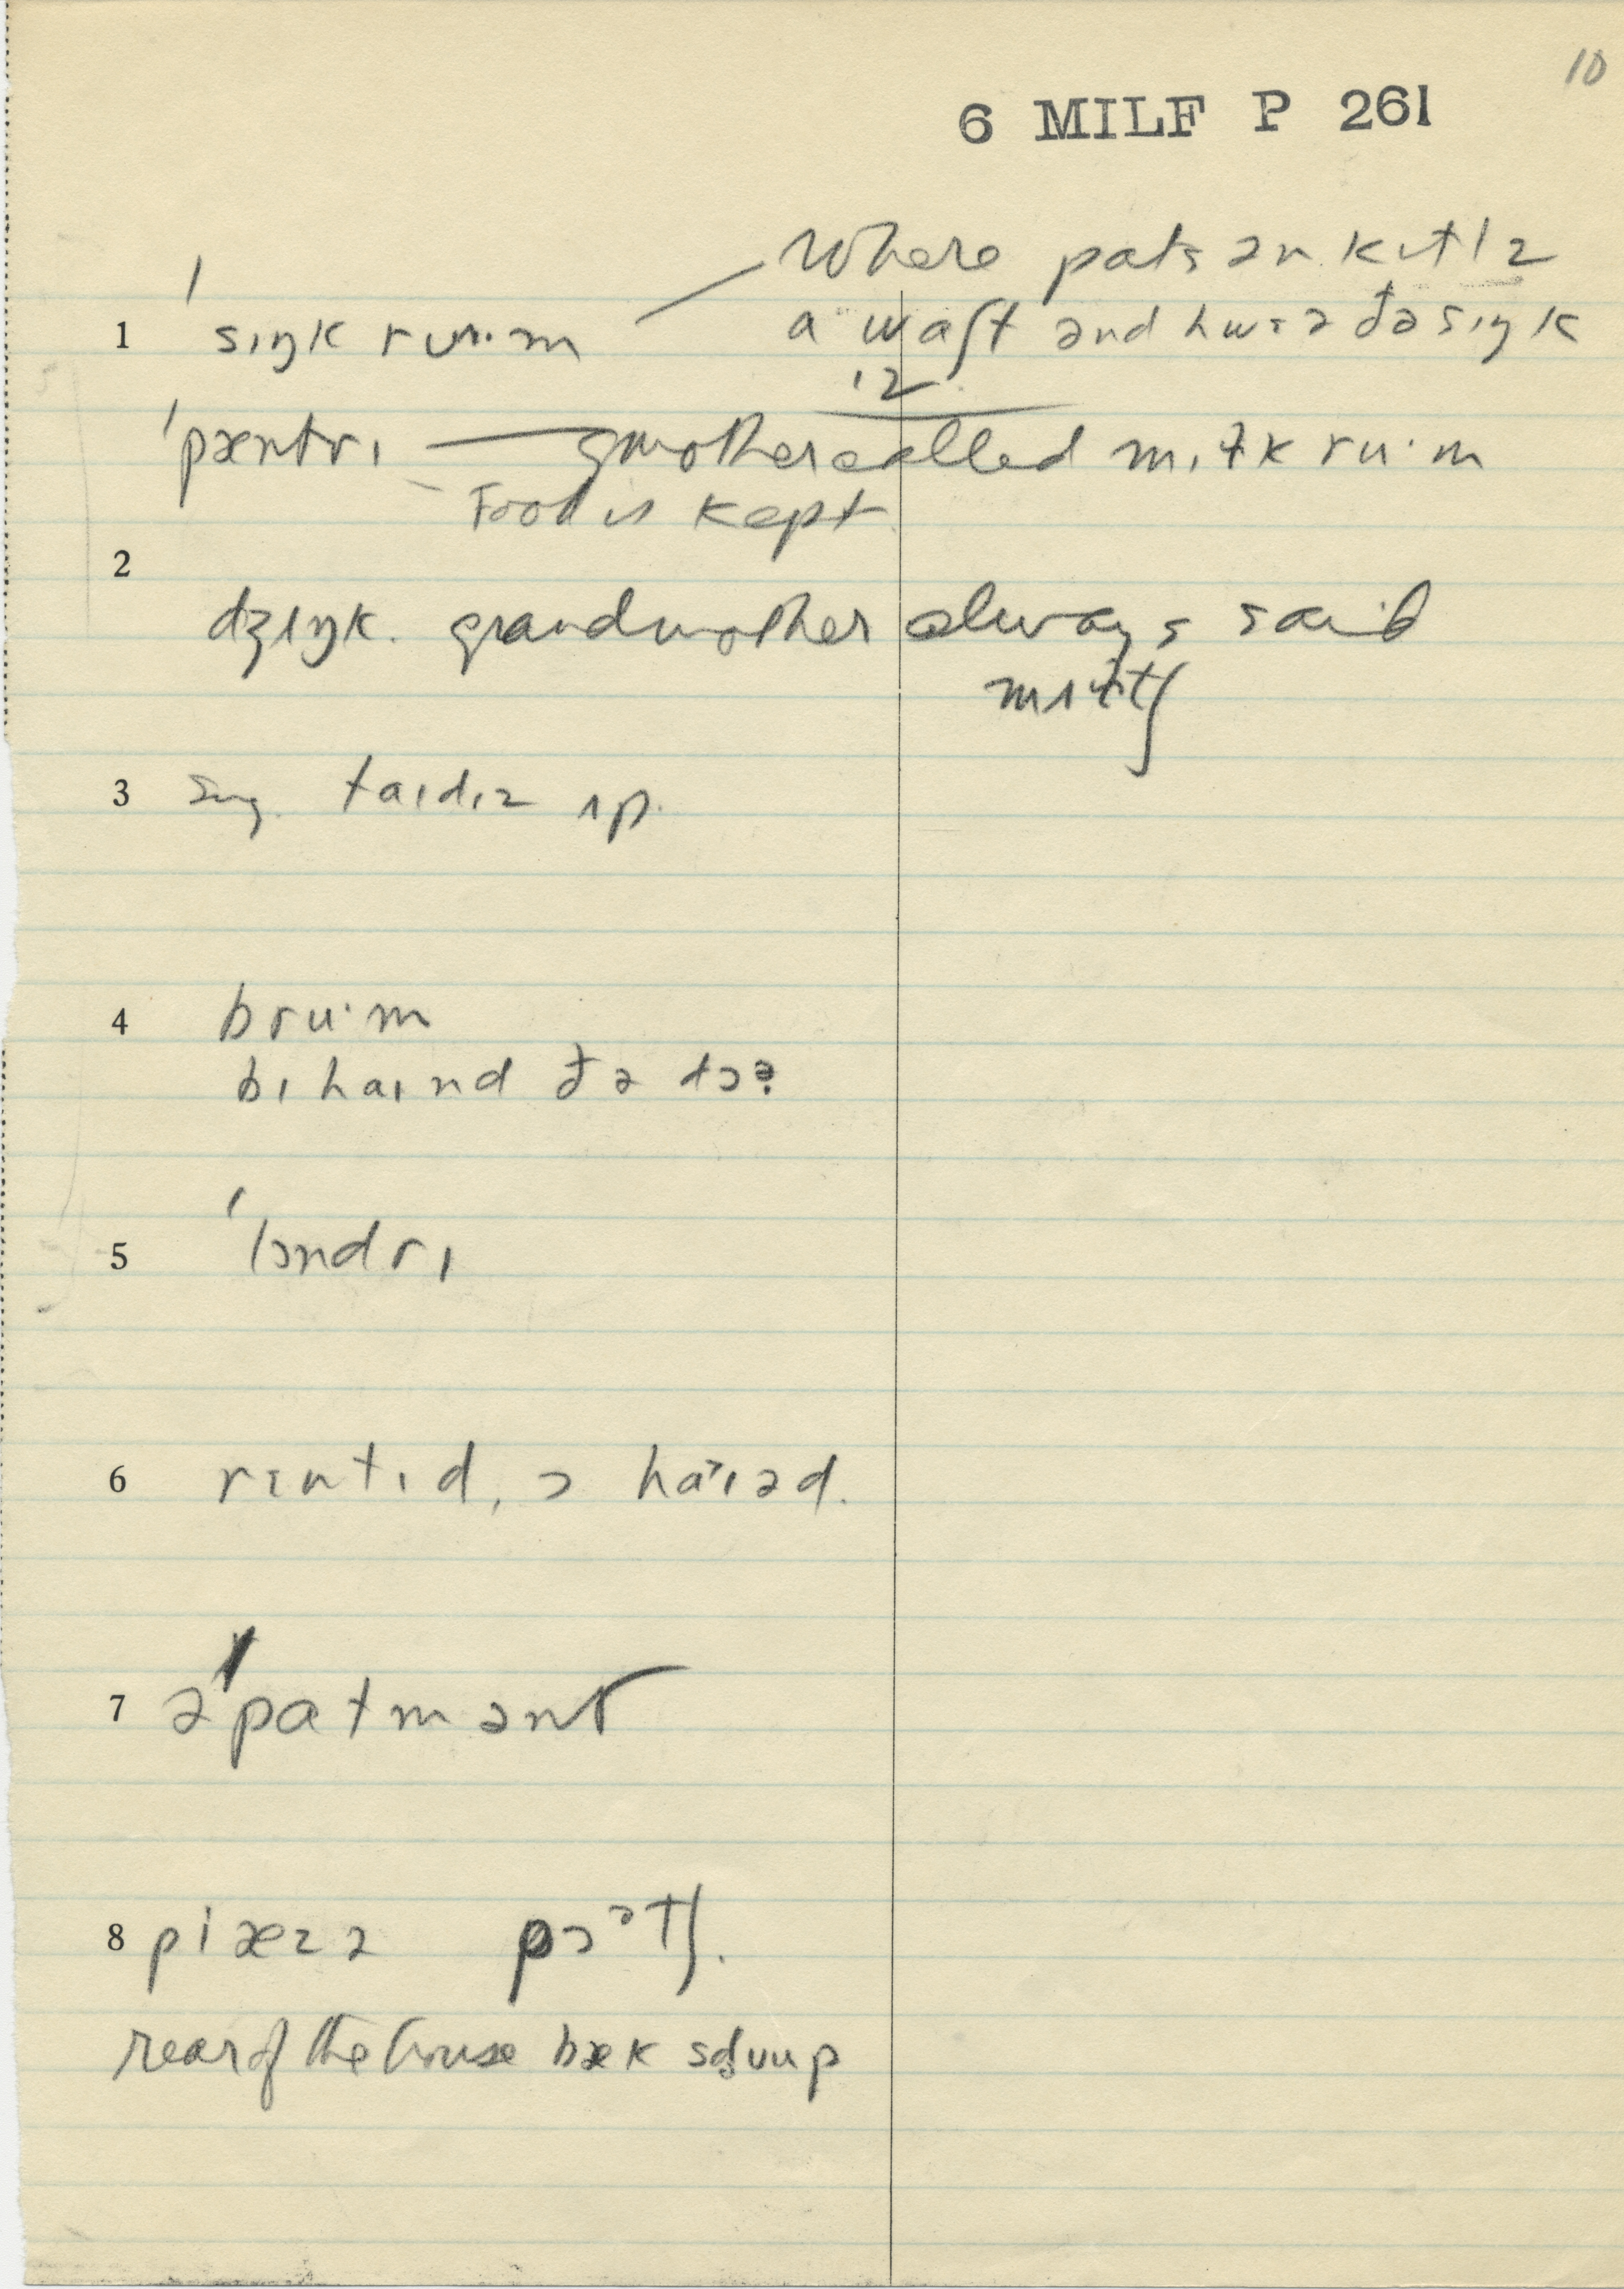 10
6 MILF P 261
Where pats ən kɪtlz
1 ˈsɪŋk ruːm a waʃt ənd hwɛə đə sɪŋk
ɪz
ˈpæntrɪ — gmother called mɪɫk ruːm
Food is kept
2
dʒʌŋk. grandmother always said
mʌɫtʃ
3 Sug. taɪdɪz ʌp.
4 bruːm
bɪhaɪnd đə dɔə
5 ˈlɔndrɪ
6 rɛntɪd, ɔ haɪəd.
7 əˈpatmənt
8 piæzə pɔətʃ.
rear of the house bæk sduup